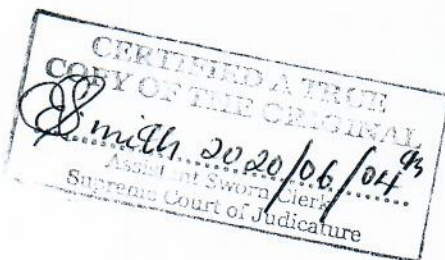 CERTIFIED A TRUE
COPY OF THE ORIGINAL
Smith 2020/06/04th
Assistant Sworn Clerk
Supreme Court of Judicature